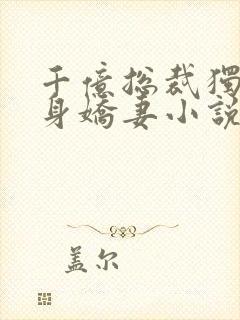 千億总裁獨
身嬌妻小說
盖尔